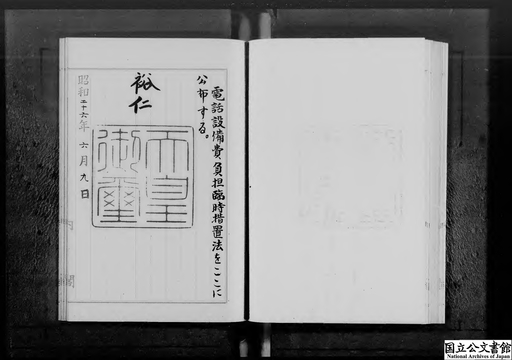 電話設備費負担臨時措置法をここに
公布する。
裕仁
天皇
御璽
昭和二十六年六月九日
国立公文書館
National Archives of Japan